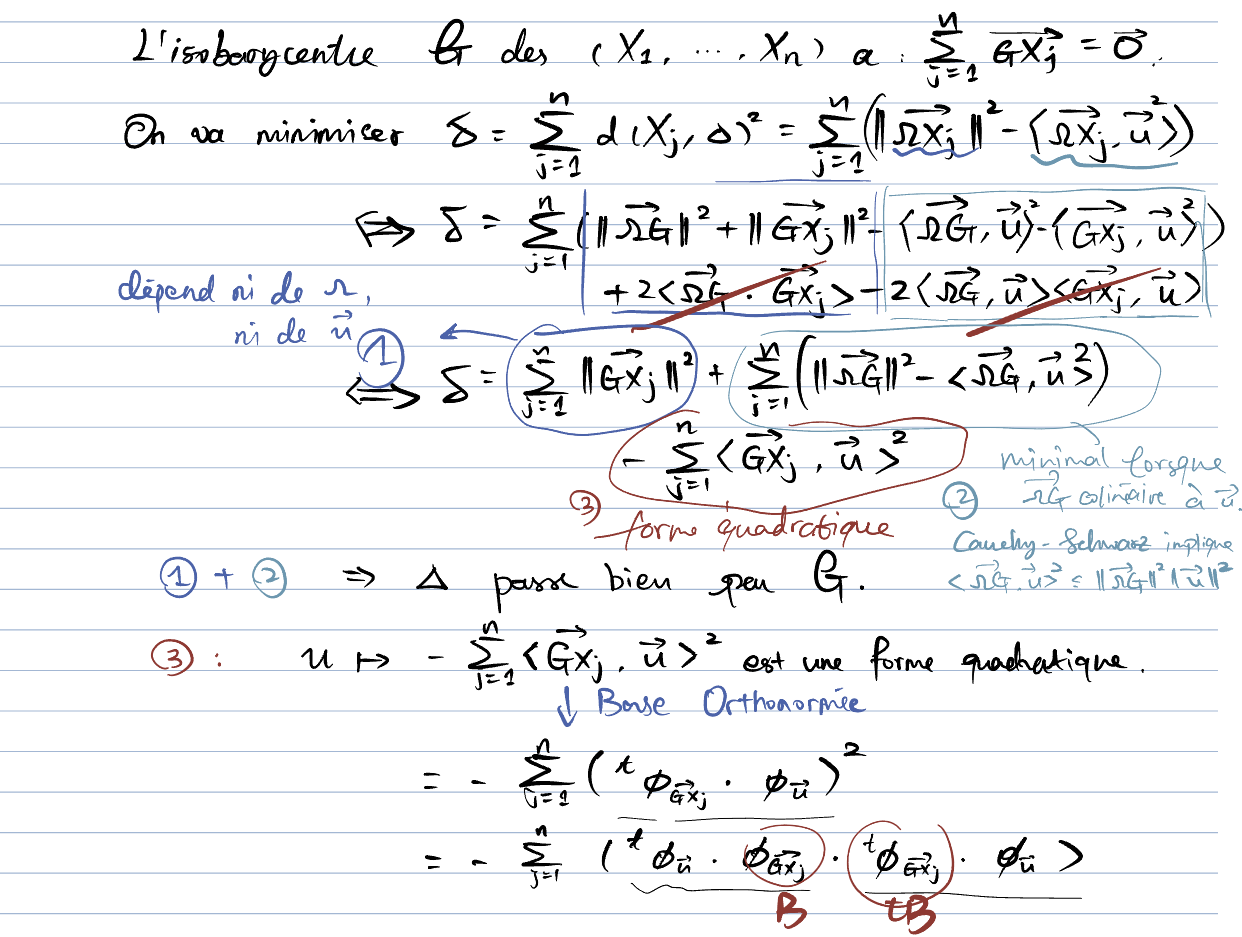 L'isobarycentre G des (X₁, ..., Xₙ) a : \sum_{j=1}^{n} \overrightarrow{GX_j} = \vec{0}.
On va minimiser δ = \sum_{j=1}^{n} d(X_j, Δ)² = \sum_{j=1}^{n} (‖\overrightarrow{ΩX_j}‖² - ⟨\overrightarrow{ΩX_j}, \vec{u}⟩²)
⟺ δ = \sum_{j=1}^{n} (‖\overrightarrow{ΩG}‖² + ‖\overrightarrow{GX_j}‖² - ⟨\overrightarrow{ΩG}, \vec{u}⟩² - ⟨\overrightarrow{GX_j}, \vec{u}⟩²)
+ 2⟨\overrightarrow{ΩG} . \overrightarrow{GX_j}⟩ - 2⟨\overrightarrow{ΩG}, \vec{u}⟩⟨\overrightarrow{GX_j}, \vec{u}⟩
dépend ni de Ω,
ni de \vec{u} ①
⟺ δ = \sum_{j=1}^{n} ‖\overrightarrow{GX_j}‖² + \sum_{j=1}^{n} (‖\overrightarrow{ΩG}‖² - ⟨\overrightarrow{ΩG}, \vec{u}⟩²)
- \sum_{j=1}^{n} ⟨\overrightarrow{GX_j}, \vec{u}⟩²
③ forme quadratique
② minimal lorsque
\overrightarrow{ΩG} colinéaire à \vec{u}.
Cauchy-Schwarz implique
⟨\overrightarrow{ΩG}, \vec{u}⟩² ≤ ‖\overrightarrow{ΩG}‖² ‖\vec{u}‖²
① + ② ⟹ Δ passe bien par G.
③ : u ↦ - \sum_{j=1}^{n} ⟨\overrightarrow{GX_j}, \vec{u}⟩² est une forme quadratique.
↓ Base Orthonormée
= - \sum_{j=1}^{n} (^tϕ_{\overrightarrow{GX_j}} · ϕ_{\vec{u}})²
= - \sum_{j=1}^{n} (^tϕ_{\vec{u}} · ϕ_{\overrightarrow{GX_j}} · ^tϕ_{\overrightarrow{GX_j}} · ϕ_{\vec{u}}⟩
B tB